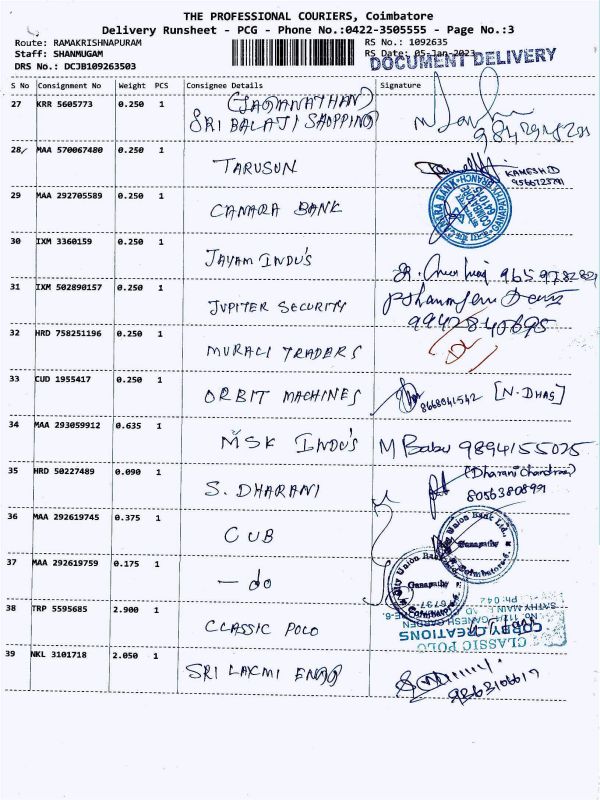 THE PROFESSIONAL COURIERS, Coimbatore
Delivery Runsheet - PCG - Phone No.:0422-3505555 - Page No.:3
Route: RAMAKRISHNAPURAM RS No.: 1092635
Staff: SHANMUGAM RS Date: 05-Jan-2023
DRS No.: DCJB109263503 DOCUMENT DELIVERY
S No Consignment No Weight PCS Consignee Details Signature
27 KRR 5605773 0.250 1 (JAGANATHAN)
SRI BALAJI SHOPPING
28 MAA 570067480 0.250 1 TARUSUN KAMESH
29 MAA 292705589 0.250 1 CANARA BANK
CANARA BANK
30 IXM 3360159 0.250 1 JAYAM INDU'S
31 IXM 502890157 0.250 1 JUPITER SECURITY
9942840695
32 HRD 758251196 0.250 1 MURALI TRADERS
33 CUD 1955417 0.250 1 ORBIT MACHINES 8668041542 [N. DHAS]
34 MAA 293059912 0.635 1 MSK INDU'S M Babu 9894155025
35 HRD 50227489 0.090 1 S. DHARANI (Dharani Chandran)
80563808991
36 MAA 292619745 0.375 1 CUB
City Union Bank Ltd.,
Ganapathy
Coimbatore-6.
37 MAA 292619759 0.175 1 — do
City Union Bank Ltd.,
Ganapathy
Coimbatore-6.
38 TRP 5595685 2.900 1 CLASSIC POLO
CLASSIC POLO
COBY CREATIONS
39 NKL 3101718 2.050 1 SRI LAXMI ENGG
9363106617